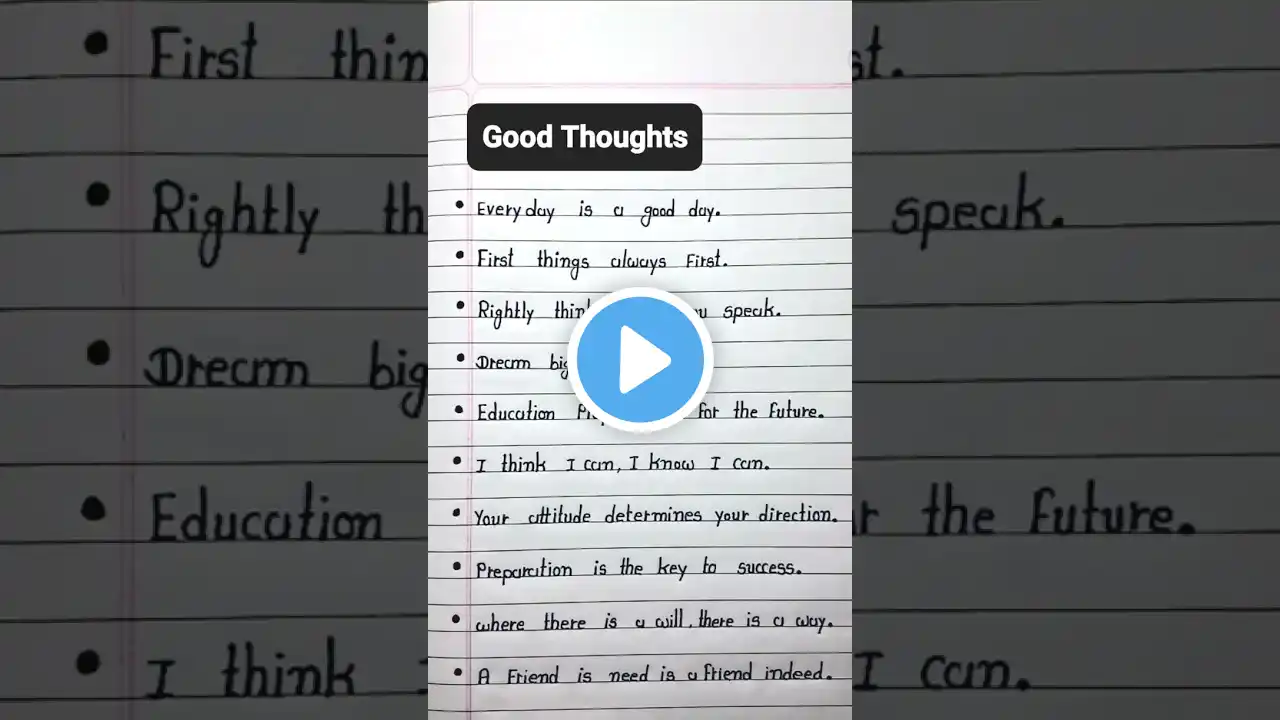 Good Thoughts
• Everyday is a good day.
• First things always First.
• Rightly speak.
• Dream big
• Education for the Future.
• I think I can, I know I can.
• Your attitude determines your direction.
• Preparation is the key to success.
• where there is a will, there is a way.
• A Friend is need is a friend indeed.
• First st.
• Rightly speak.
• Dream big
• Education the Future.
• I think I can.